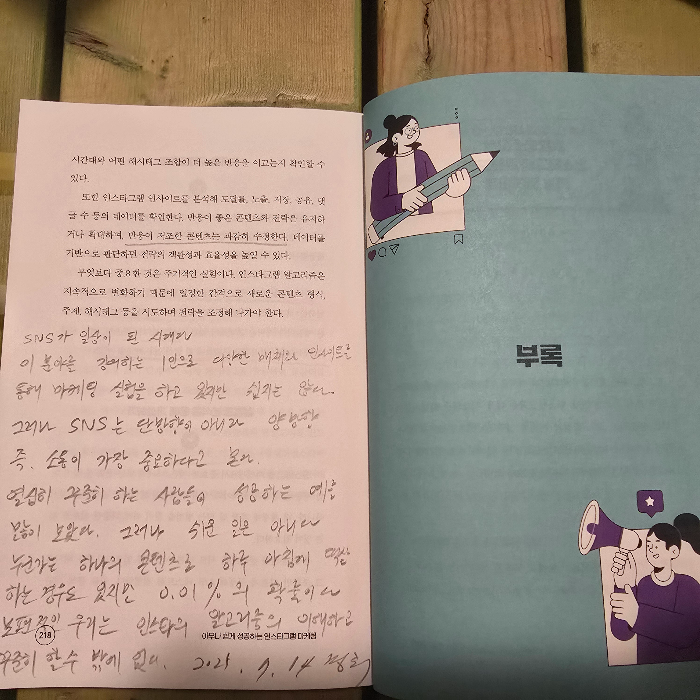 시간대와 어떤 해시태그 조합이 더 높은 반응을 이끄는지 확인할 수
있다.
또한 인스타그램 인사이트를 분석해 도달률, 노출, 저장, 공유, 댓
글 수 등의 데이터를 확인한다. 반응이 좋은 콘텐츠와 전략은 유지하
거나 확대하며, 반응이 저조한 콘텐츠는 과감히 수정한다. 데이터를
기반으로 판단하면 전략의 객관성과 효율성을 높일 수 있다.
무엇보다 중요한 것은 주기적인 실험이다. 인스타그램 알고리즘은
지속적으로 변화하기 때문에 일정한 간격으로 새로운 콘텐츠 형식,
주제, 해시태그 등을 시도하며 전략을 조정해 나가야 한다.
SNS가 일상이 된 시대다
이 분야를 강의하는 1인으로 다양한 매체와
통해 마케팅 실험을 하고 있지만 쉽지는 않다.
그러나 SNS는 단방향이 아니라 양방향
즉, 소통이 가장 중요하다고 본다.
열심히 꾸준히 하는 사람들이 성공하는 예를
많이 보았다. 그러나 쉬운 일은 아니다
누군가는 하나의 콘텐츠로 하루 아침에
하는 경우도 있지만 0.01%의 확률이다
우리는 인스타의 알고리즘의 이해하고
꾸준히 할 수 밖에 없다. 2025. 9. 14
218
아무나 쉽게 성공하는 인스타그램 마케팅
부록